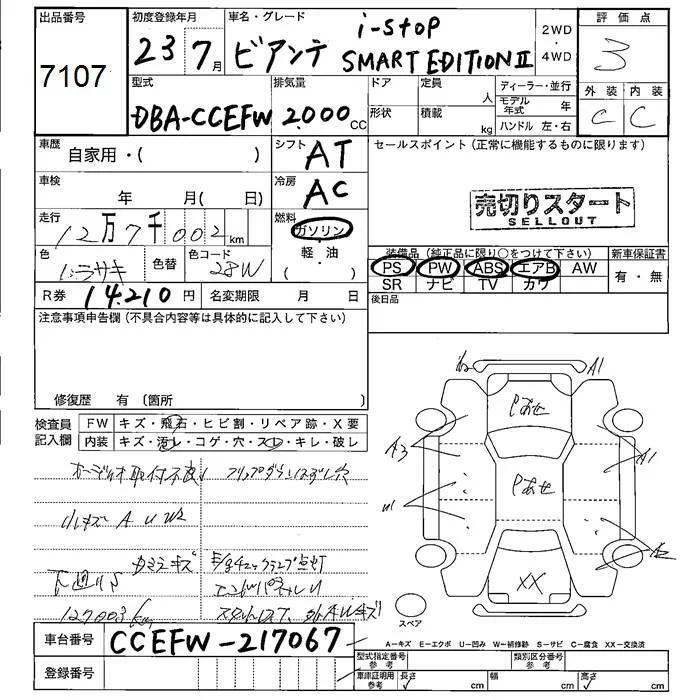 出品番号 初度登録年月 車名・グレード 2WD・4WD 評価点
7107 23 7月 ビアンテ i-stop SMART EDITION II 3
型式 排気量 ドア 定員 人 ディーラー・並行 外装 内装
DBA-CCEFW 2000 cc 形状 積載 kg モデル年式 年 C C
ハンドル 左・右
車歴 自家用・( ) シフト AT セールスポイント(正常に機能するものに限ります)
車検 年 月( 日) 冷房 AC
売切りスタート
SELLOUT
走行 12万7千002km 燃料 ガソリン
軽・油
( )
色 色替 色コード 28W
装備品(純正品に限り○をつけて下さい) 新車保証書
PS PW ABS エアB AW 有・無
SR ナビ TV カワ
R券 14210円 名変期限 月 日 後日品
注意事項申告欄(不具合内容等は具体的に記入して下さい)
修復歴 有(箇所 )
検査員記入欄 FW キズ・飛石・ヒビ割・リペア跡・X要
内装 キズ・汚レ・コゲ・穴・スレ・キレ・破レ
オーディオ取付不良
小キズ A U
下廻りS
エンドパネル
127003km
A1
A3
A1
Pあせ
Pあせ
XX
スペア
A-キズ E-エクボ U-凹み W-補修跡 S-サビ C-腐食 XX-交換済
車台番号 CCEFW-217067
型式指定番号 参考 類別区分番号 参考
登録番号 車庫証明用 参考 長さ cm 幅 cm 高さ cm